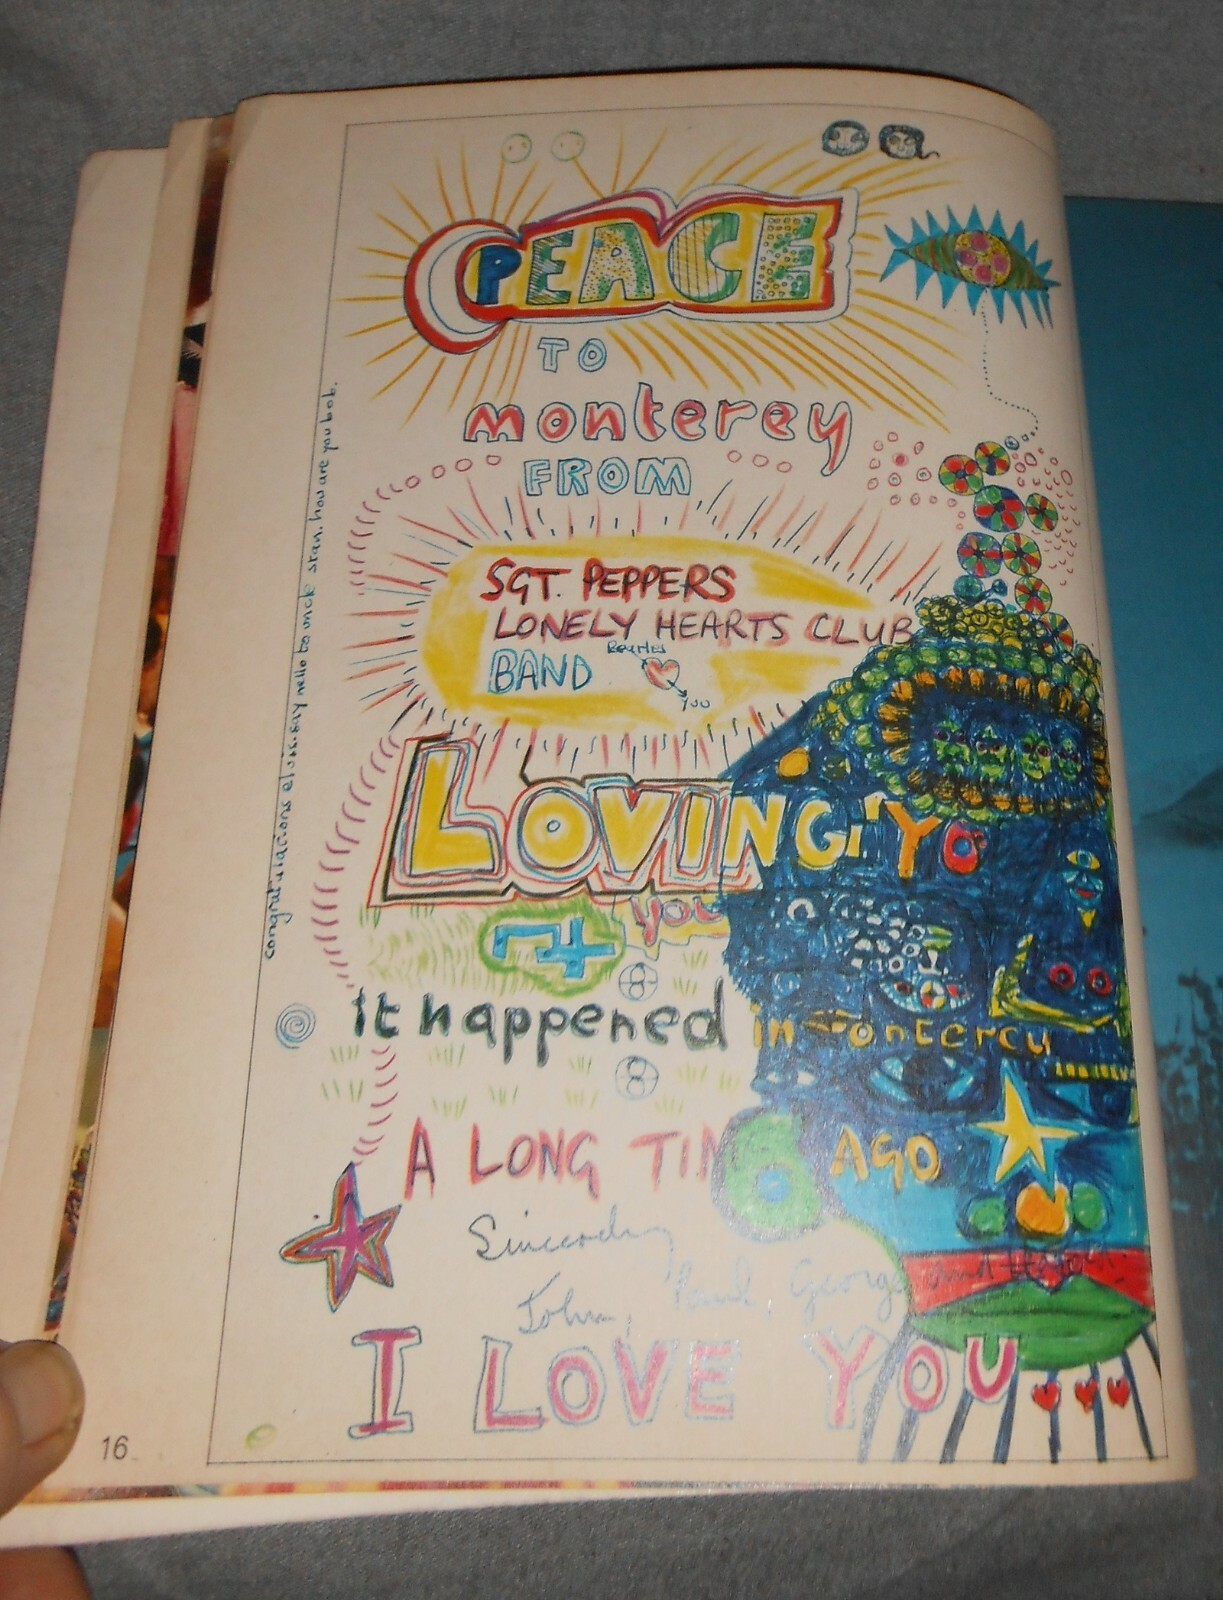 PEACE
TO
monterey
FROM
SGT. PEPPERS
LONELY HEARTS CLUB
BAND
Beatles
YOU
LOVING YO
you
it happened in monterey
A LONG TIME AGO
Sincerely
John, Paul, George and
I LOVE YOU
congratulations elvis. say hello to uncle stan. how are you bob.
16